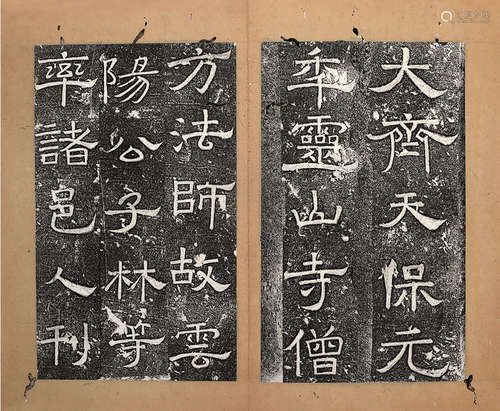 大齊天保元
年靈山寺僧
方法師故雲
陽公子林等
率諸邑人刊